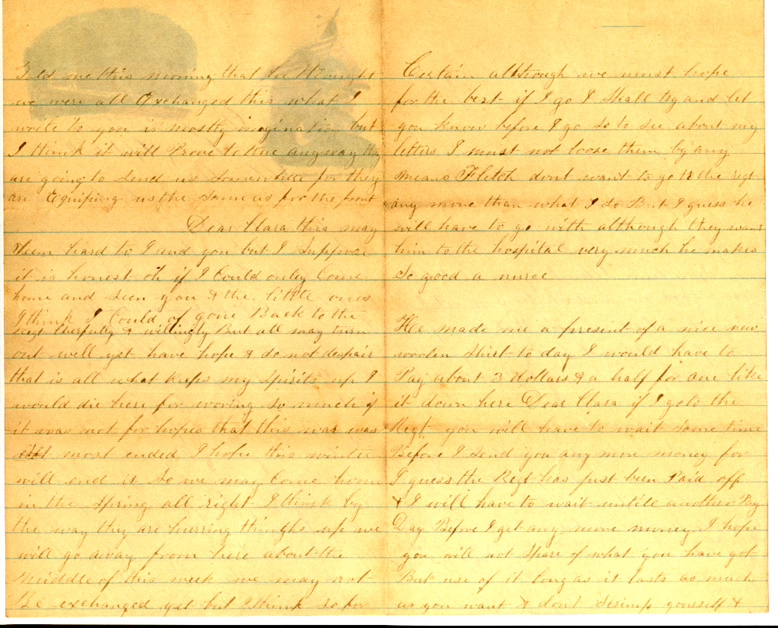 Told me this morning that he thought
we were all Exchanged this what I
write to you is mostly imagination but
I think it will Prove to true anyway they
are going to Send us Somewhere for they
are Equiping us the same as for the front
Dear Clara this may
Seem hard to I and you but I Suppose
it is honest oh if I Could onley Come
home and Seen you & the little ones
I think I Could of gone Back to the
regt Cherfuly & willingly But all may turn
out well yet have hope & do not despair
that is all what Keeps my Spirits up I
would die here for woring so much if
it was not for hopes that this war was
most ended I hope this winter
will end it So we may Come home
in the Spring all right I think by
the way they are hurring thinghs up we
will go away from here about the
Middle of this week we may not
Be exchanged yet but I think so for
Certain although we must hope
for the best if I go I Shall try and let
you know before I go So to See about my
letters I must not loose them by any
means Flitch dont want to go to the regt
any more than what I do But I guess he
will have to go with although they want
him to the hospital very much he makes
So good a nurse
He made me a present of a nice new
woolen Shirt to day I would have to
Pay about 3 dollars & a half for one like
it down here Dear Clara if I go to the
Regt you will have to wait some time
Before I Send you any more money for
I guess the Regt has just been Paid off
& I will have to wait untile another Pay
Day Before I get any more money I hope
you will not Spare of what you have got
But use of it long as it lasts as much
as you want & dont Scrimp yourself &